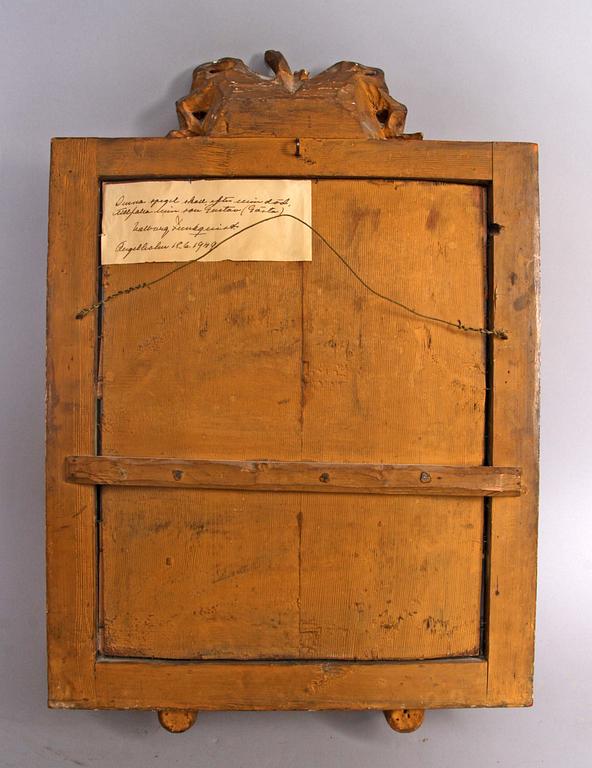 Denna spegel skall efter min död,
tillfalla min son Gustav (Gösta)
Valborg Lundquist.
Ängelholm 18.6.1949